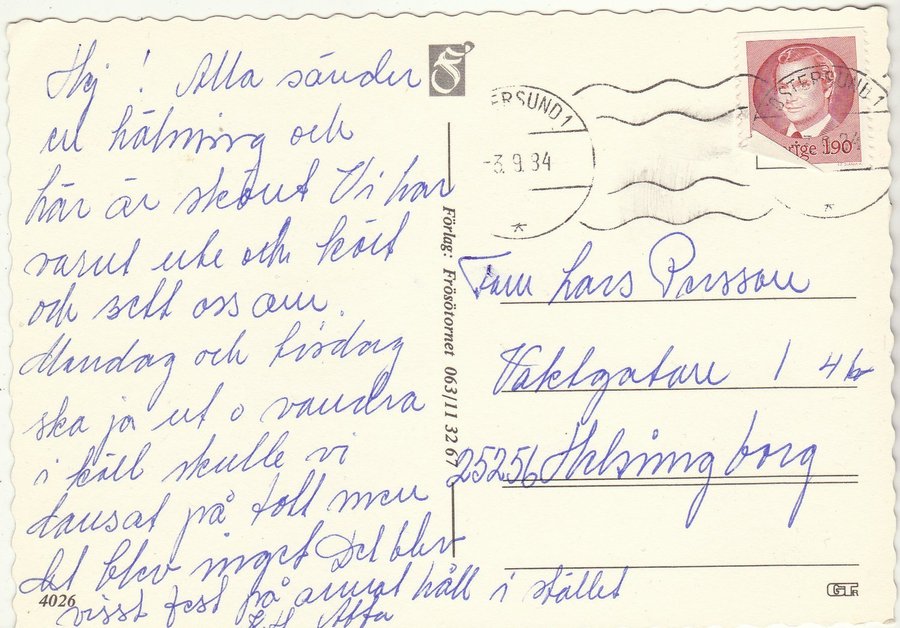 Hej! Alla sänder
en hälsning och
här är skönt Vi har
varit ute och kört
och sett oss om.
Mandag och tisdag
ska ja ut o vandra
i kväll skulle vi
dansat på tott men
det blev inget Det blev
visst fest på annat håll i stället
Alla
4026
Förlag: Frösötornet 063/11 32 67
ERSUND 1
-3.9.84
ÖSTERSUND 1
rige 190
Fam Lars Persson
Vaktgatan 1 4 tr
25256 Helsingborg